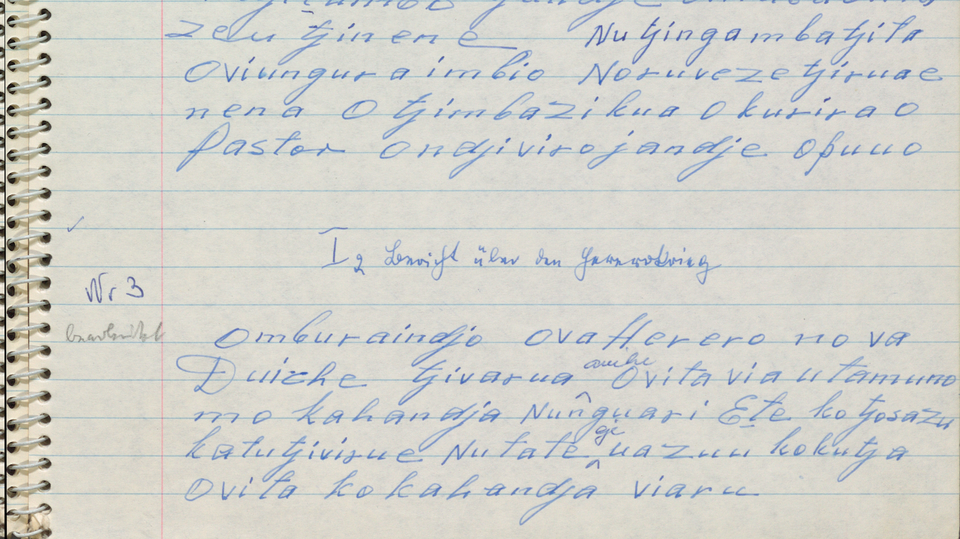 zeu tjinene Nutjingambatjita
Oviungura imbio Noruvezetjiruae
nena Otjimbazikua Okurira O
Pastor Ondjivirojandje opuuo
I2 Bericht über den Hererokrieg
Nr 3
bearbeitet
omburaindjo ovaHerero no va
Duiche tjivarua ombe Ovita via utamuno
mo kahandja Nunguari Ete ko tjosazu
katutjivirue Nutate ge uazuu kokutja
Ovita ko kahandja viaru